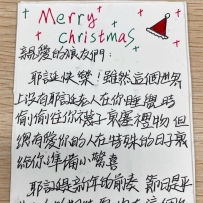 Merry
christmas
親愛的朋友們:
耶誕快樂!雖然這個世界
上沒有耶誕老人在你睡覺時
偷偷在你襪子裏塞禮物,但
總有愛你的人在特殊的日子裏
給你準備小驚喜
耶誕是新年的前奏,節日是平